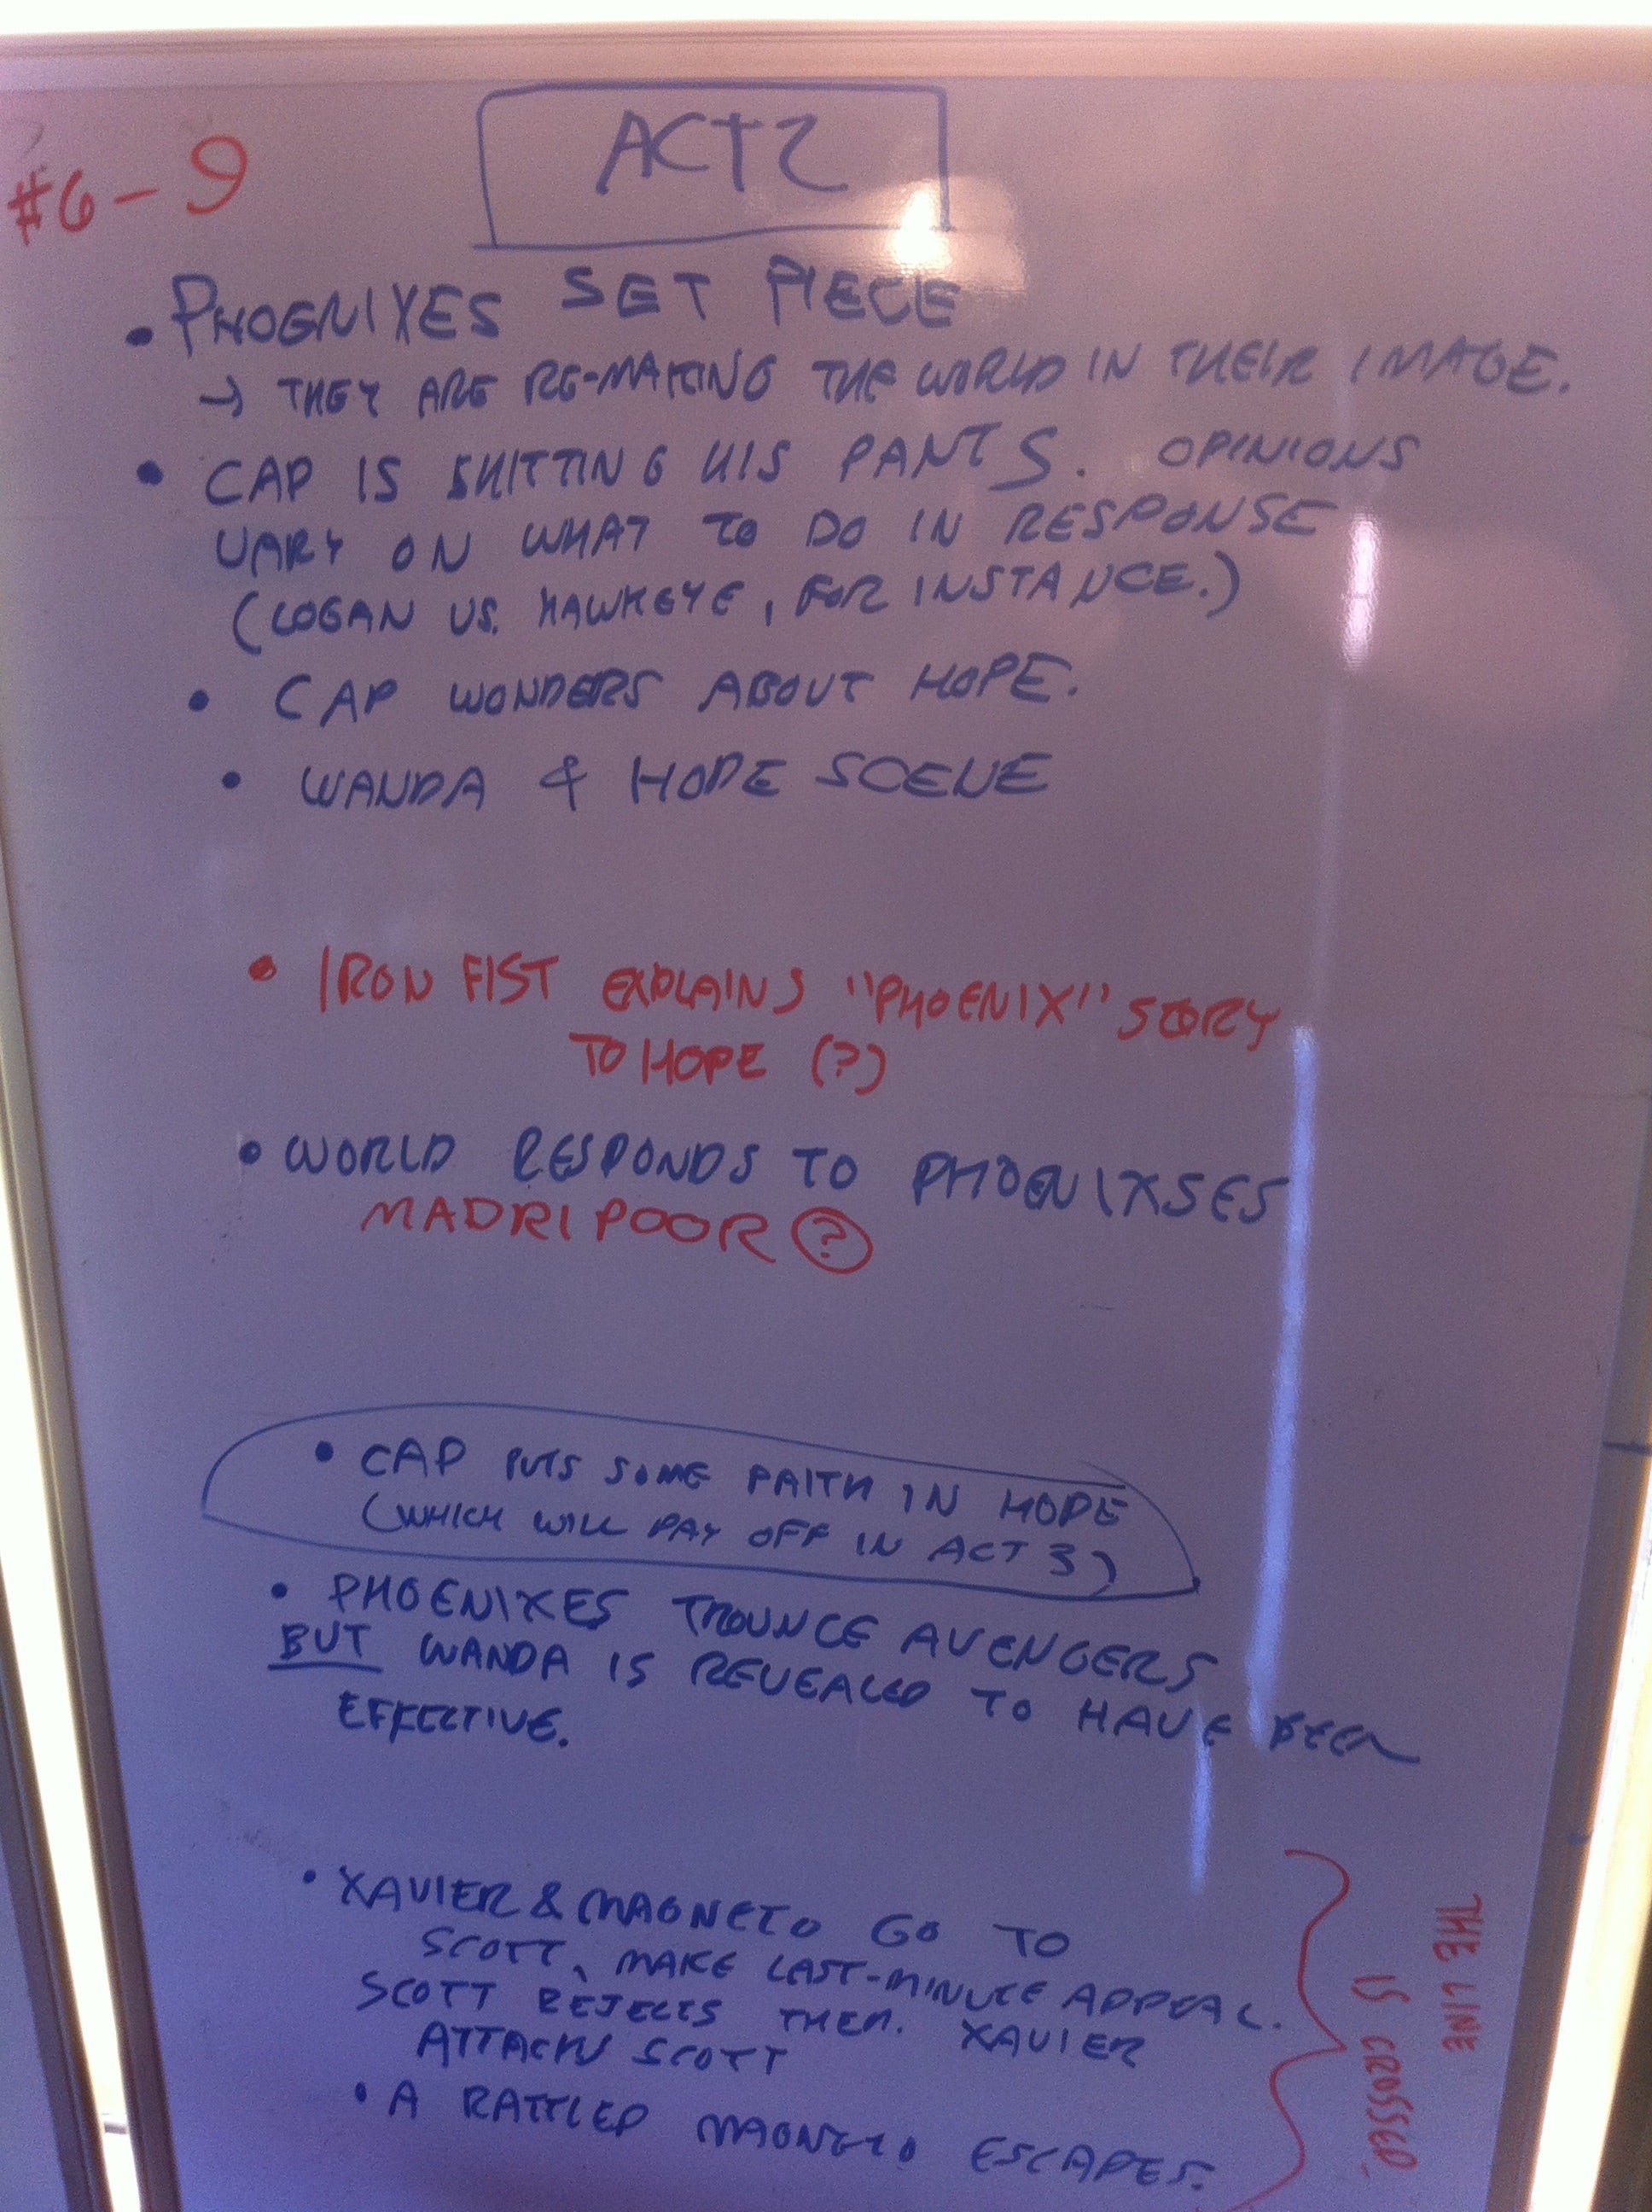 ACT 2
#6-9
• PHOENIXES SET PIECE
→ THEY ARE RE-MAKING THE WORLD IN THEIR IMAGE.
• CAP IS SHITTING HIS PANTS. OPINIONS
VARY ON WHAT TO DO IN RESPONSE
(LOGAN VS. HAWKEYE, FOR INSTANCE.)
• CAP WONDERS ABOUT HOPE.
• WANDA & HOPE SCENE
• IRON FIST EXPLAINS "PHOENIX" STORY
TO HOPE (?)
• WORLD RESPONDS TO PHOENIXSES
MADRIPOOR ?
• CAP PUTS SOME FAITH IN HOPE
(WHICH WILL PAY OFF IN ACT 3)
• PHOENIXES TROUNCE AVENGERS
BUT WANDA IS REVEALED TO HAVE BEEN
EFFECTIVE.
• XAVIER & MAGNETO GO TO
SCOTT, MAKE LAST-MINUTE APPEAL.
SCOTT REJECTS THEM. XAVIER
ATTACKS SCOTT
• A RATTLED MAGNETO ESCAPES.
THE LINE
IS CROSSED.